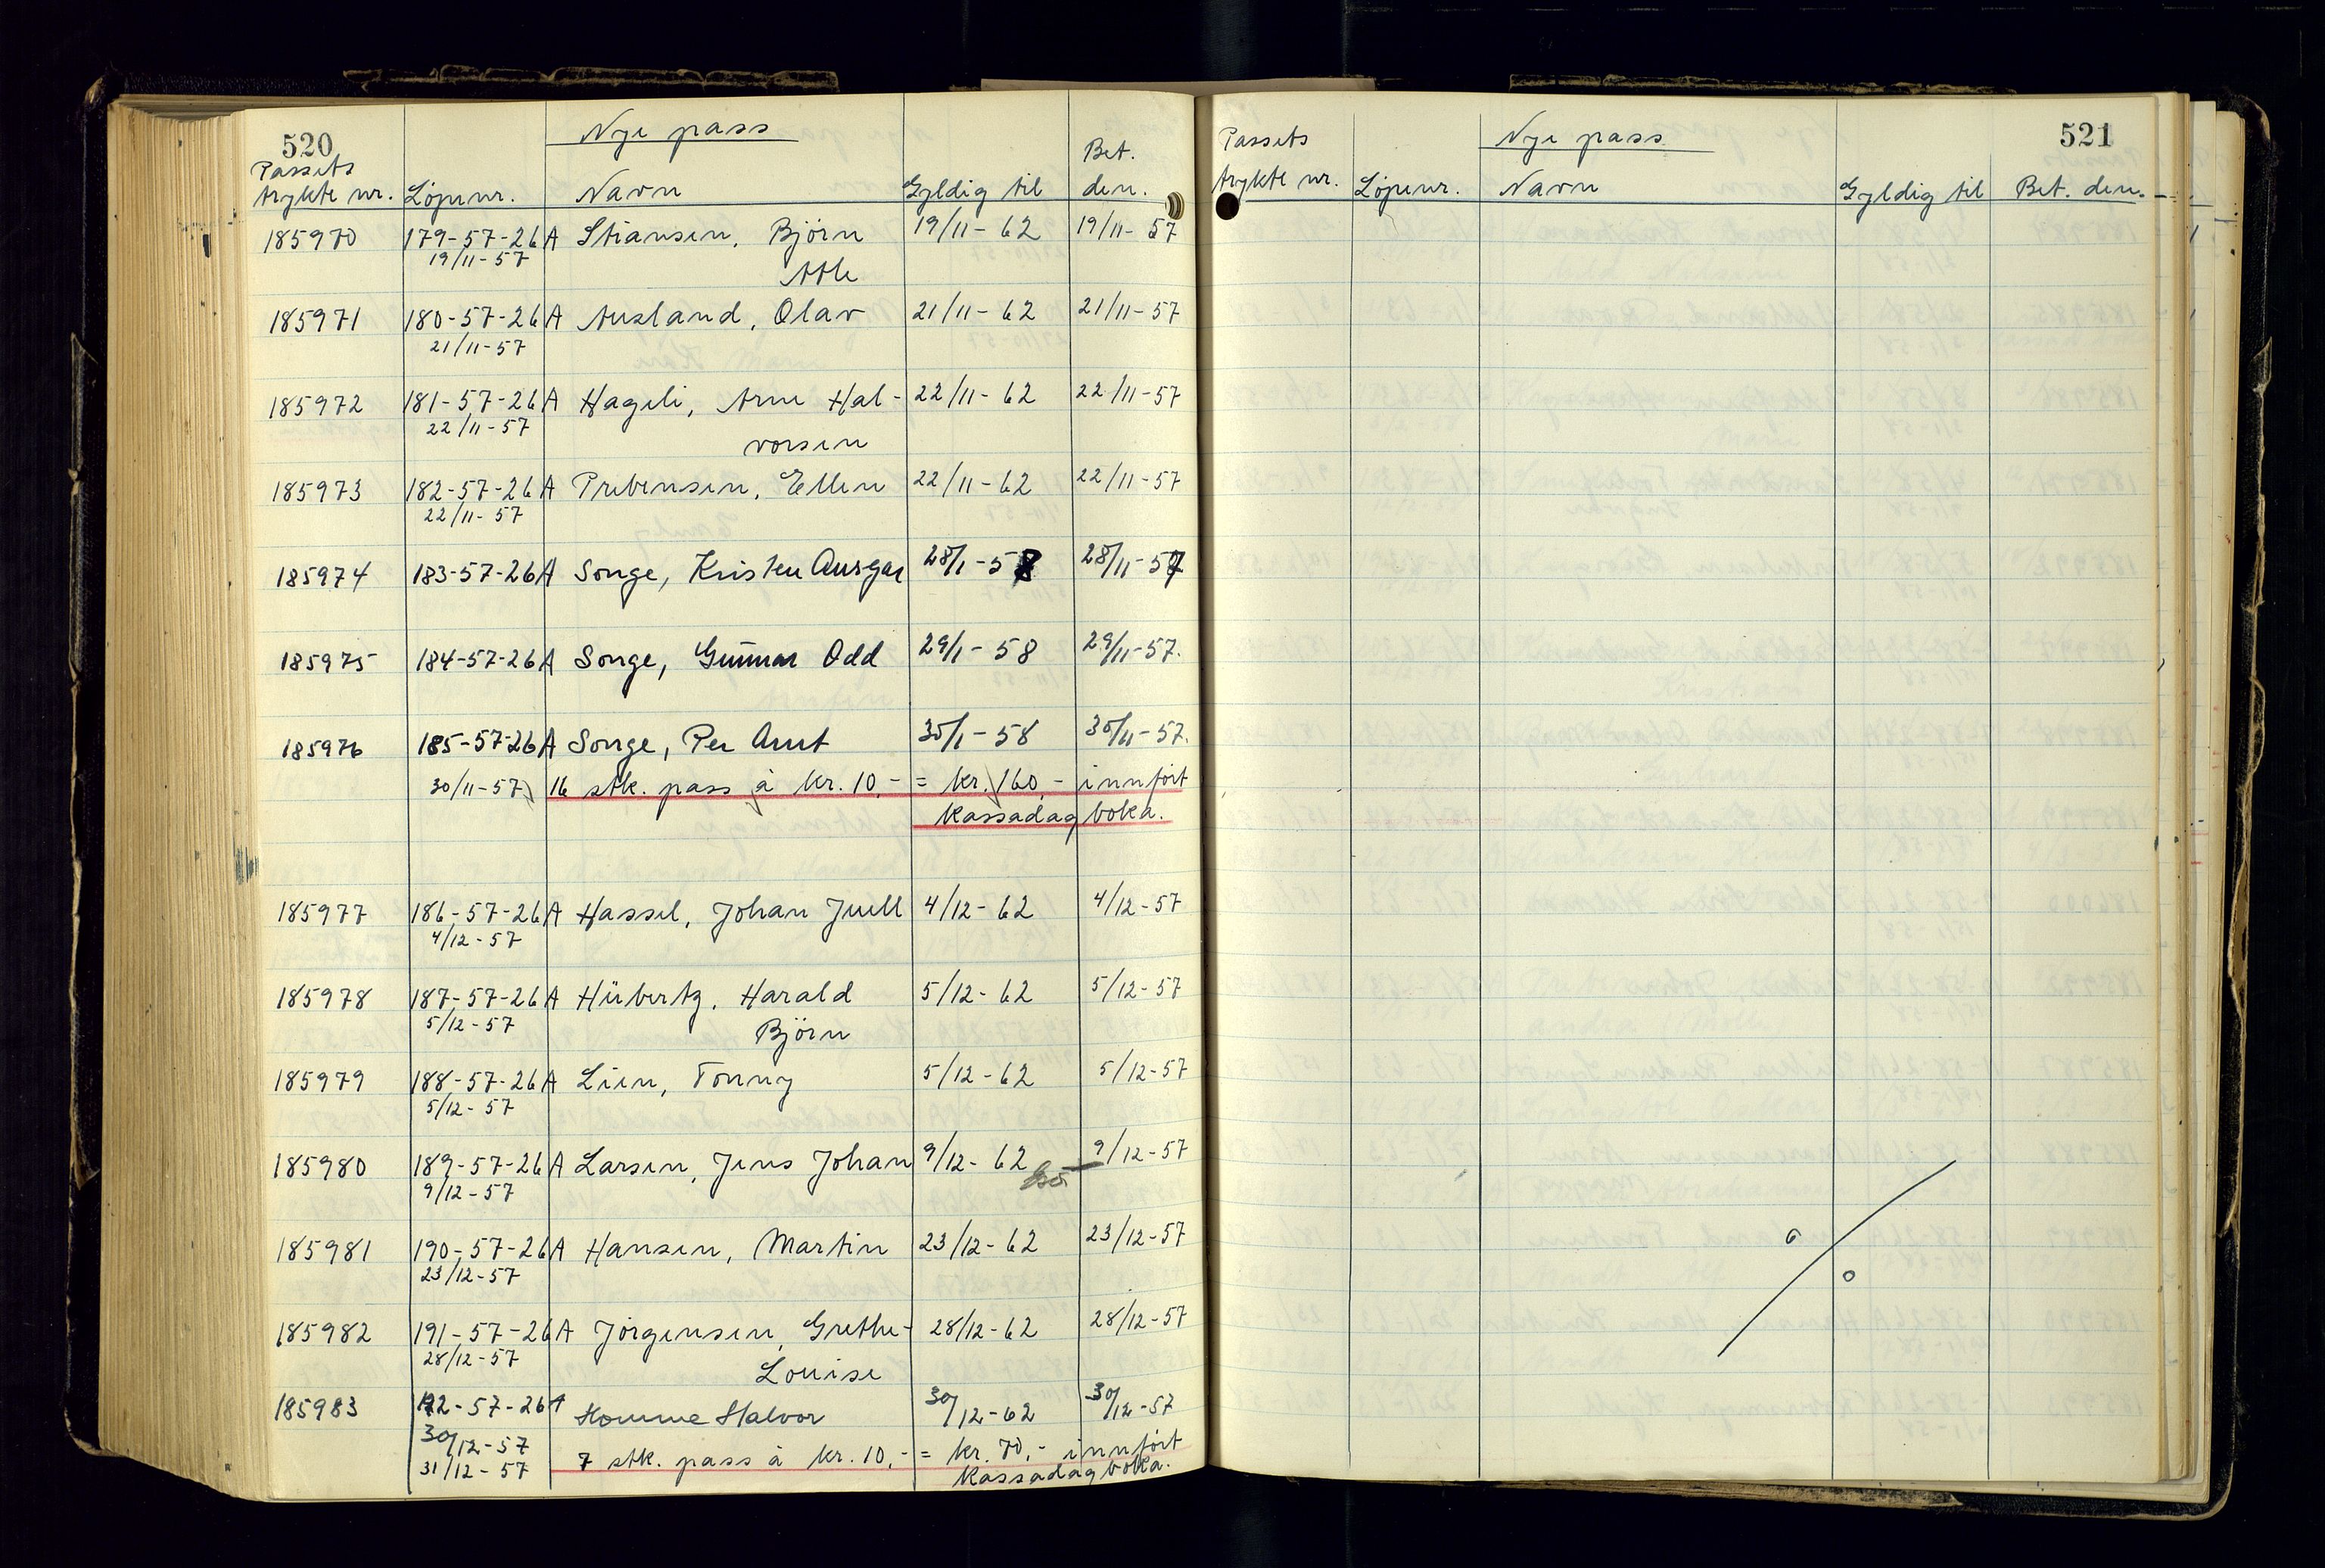 520
Nye pass
Passets trykte nr. Løpenr. Navn Gyldig til Bet. den.
185970 179-57-26A Stiansen, Björn 19/11-62 19/11-57
19/11-57 Atle
185971 180-57-26A Ausland, Olav 21/11-62 21/11-57
21/11-57
185972 181-57-26A Hageli, Arne Hal- 22/11-62 22/11-57
22/11-57 vorsen
185973 182-57-26A Prebensen, Ellen 22/11-62 22/11-57
22/11-57
185974 183-57-26A Songe, Kristen Ansgar 28/1-58 28/11-57
185975 184-57-26A Songe, Gunnar Odd 29/1-58 29/11-57.
185976 185-57-26A Songe, Per Arnt 30/1-58 30/11-57.
30/11-57 16 stk. pass à kr. 10,- = kr. 160,- innført
kassadagboka.
185977 186-57-26A Hassel, Johan Juell 4/12-62 4/12-57
4/12-57
185978 187-57-26A Hübertz, Harald 5/12-62 5/12-57
5/12-57 Björn
185979 188-57-26A Lien, Tonny 5/12-62 5/12-57
5/12-57
185980 189-57-26A Larsen, Jens Johan 9/12-62 9/12-57
9/12-57
185981 190-57-26A Hansen, Martin 23/12-62 23/12-57
23/12-57
185982 191-57-26A Jörgensen, Grethe- 28/12-62 28/12-57
28/12-57 Louise
185983 192-57-26A Homme Halvor 30/12-62 30/12-57
30/12-57
31/12-57 7 stk. pass à kr. 10,- = kr. 70,- innført
kassadagboka.
521
Nye pass
Passets trykte nr. Løpenr. Navn Gyldig til Bet. den.